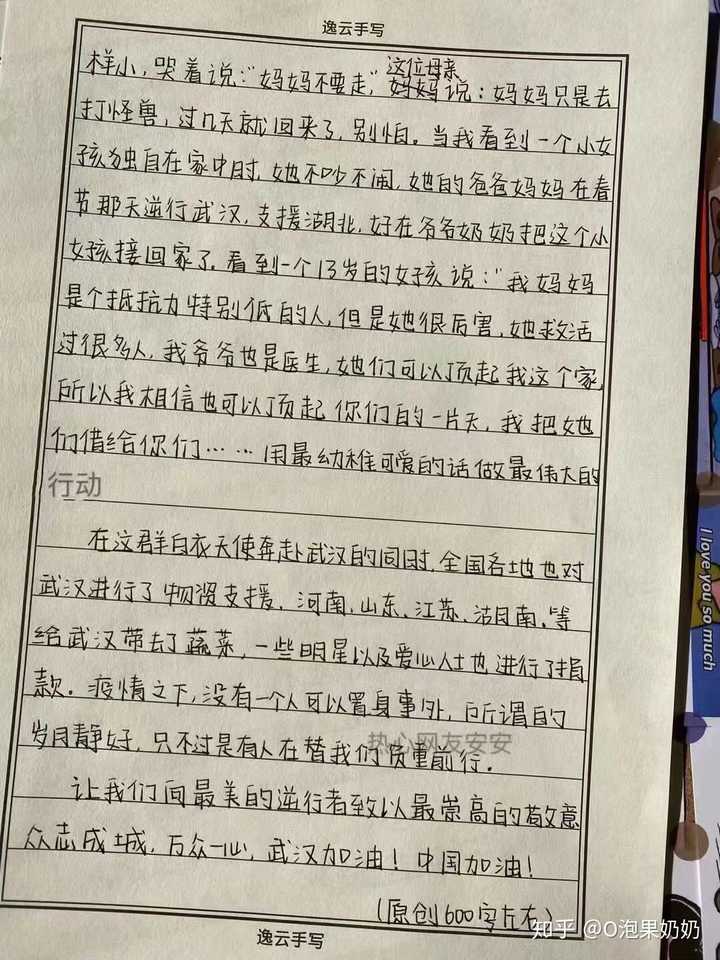 逸云手写
样小，哭着说：“妈妈不要走”，妈妈说：妈妈只是去
这位母亲
打怪兽，过几天就回来了，别怕。当我看到一个小女
孩独自在家中时，她不吵不闹，她的爸爸妈妈在春
节那天逆行武汉，支援湖北，好在爷爷奶奶把这个小
女孩接回家了。看到一个13岁的女孩说：“我妈妈
是个抵抗力特别低的人，但是她很厉害，她救活
过很多人，我爷爷也是医生，她们可以顶起我这个家，
所以我相信也可以顶起你们的一片天，我把她
们借给你们……用最幼稚可爱的话做最伟大的
行动
在这群白衣天使奔赴武汉的同时，全国各地也对
武汉进行了物资支援，河南、山东、江苏、湖南、等
给武汉带去了蔬菜，一些明星以及爱心人士也进行了捐
款。疫情之下，没有一个人可以置身事外，所谓的
岁月静好，只不过是有人在替我们负重前行。
热心网友安安
让我们向最美的逆行者致以最崇高的敬意
众志成城，万众一心，武汉加油！中国加油！
（原创600字左右）
逸云手写
知乎 @O泡果奶奶
I love you so much